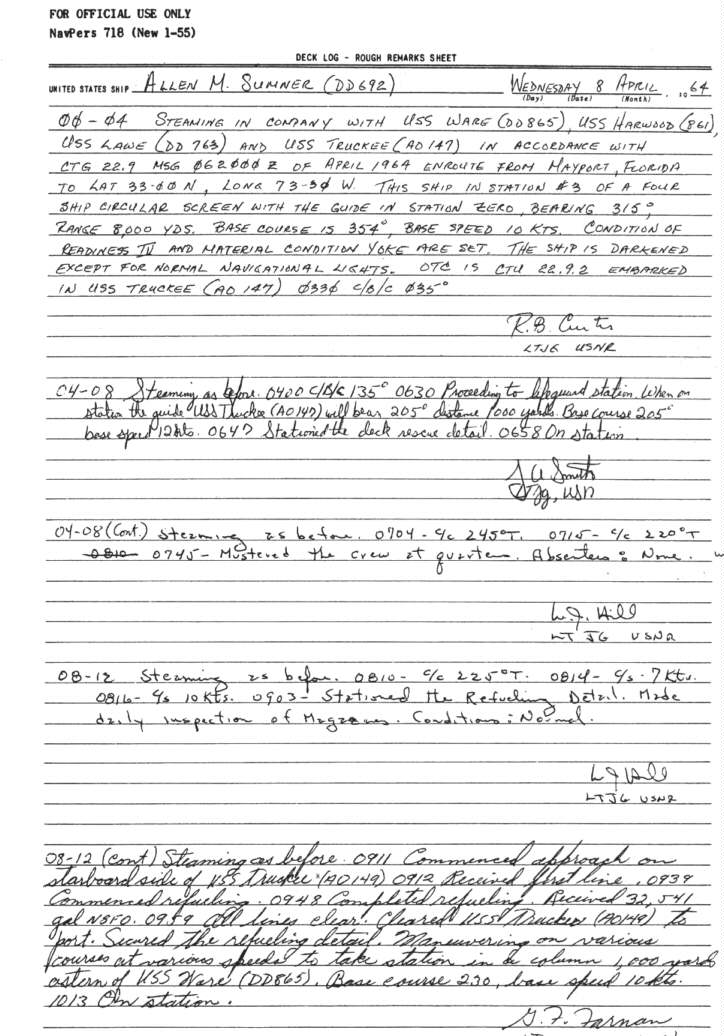 FOR OFFICIAL USE ONLY
NavPers 718 (New 1-55)
DECK LOG - ROUGH REMARKS SHEET
UNITED STATES SHIP ALLEN M. SUMNER (DD692) WEDNESDAY 8 APRIL, 1964
(Day) (Date) (Month)
ØØ-Ø4 STEAMING IN COMPANY WITH USS WARE (DD865), USS HARWOOD (861),
USS LAWE (DD 763) AND USS TRUCKEE (AO 147) IN ACCORDANCE WITH
CTG 22.9 MSG Ø62ØØØZ OF APRIL 1964 ENROUTE FROM MAYPORT, FLORIDA
TO LAT 33-ØØ N, LONG 73-3Ø W. THIS SHIP IN STATION #3 OF A FOUR
SHIP CIRCULAR SCREEN WITH THE GUIDE IN STATION ZERO, BEARING 315°,
RANGE 8,000 YDS. BASE COURSE IS 354°, BASE SPEED 10 KTS. CONDITION OF
READINESS IV AND MATERIAL CONDITION YOKE ARE SET. THE SHIP IS DARKENED
EXCEPT FOR NORMAL NAVIGATIONAL LIGHTS. OTC IS CTU 22.9.2 EMBARKED
IN USS TRUCKEE (AO 147) Ø33Ø C/B/C Ø35°
R.B. Curtis
LTJG USNR
04-08 Steaming as before. 0400 C/B/C 135° 0630 Proceeding to lifeguard station. When on
station the guide USS Truckee (AO147) will bear 205° distance 1000 yards. Base course 205°
base speed 12 kts. 0647 Stationed the deck rescue detail. 0658 On station.
Smith
Ltjg, USN
04-08 (Cont.) Steaming as before. 0704 - C/c 245°T. 0715 - C/c 220°T
0810 0745 - Mustered the crew at quarters. Absentees: None.
W.J. Hill
LTJG USNR
08-12 Steaming as before. 0810 - C/c 225°T. 0814 - C/s - 7 Kts.
0816 - C/s 10 Kts. 0903 - Stationed the Refueling Detail. Made
daily inspection of Magazines. Conditions: Normal.
WJ Hill
LTJG USNR
08-12 (cont) Steaming as before. 0911 Commenced approach on
starboard side of USS Truckee (AO149) 0912 Received first line. 0939
Commenced refueling. 0948 Completed refueling. Received 32,541
gal NSFO. 0959 All lines clear. Cleared USS Truckee (AO149) to
port. Secured the refueling detail. Maneuvering on various
courses at various speeds to take station in a column 1,000 yards
astern of USS Ware (DD865). Base course 230, base speed 10 kts.
1013 On station.
G. F. Farnan